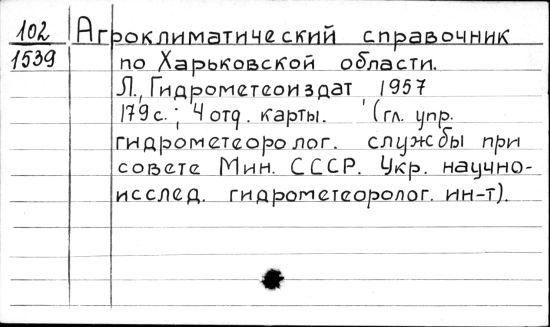 102 Агроклиматический справочник
1539 по Харьковской области.
Л., Гидрометеоиздат 1957
179 с.; 4 отд. карты. (гл. упр.
гидрометеоролог. службы при
совете Мин. СССР. Укр. научно-
исслед. гидрометеоролог. ин-т).